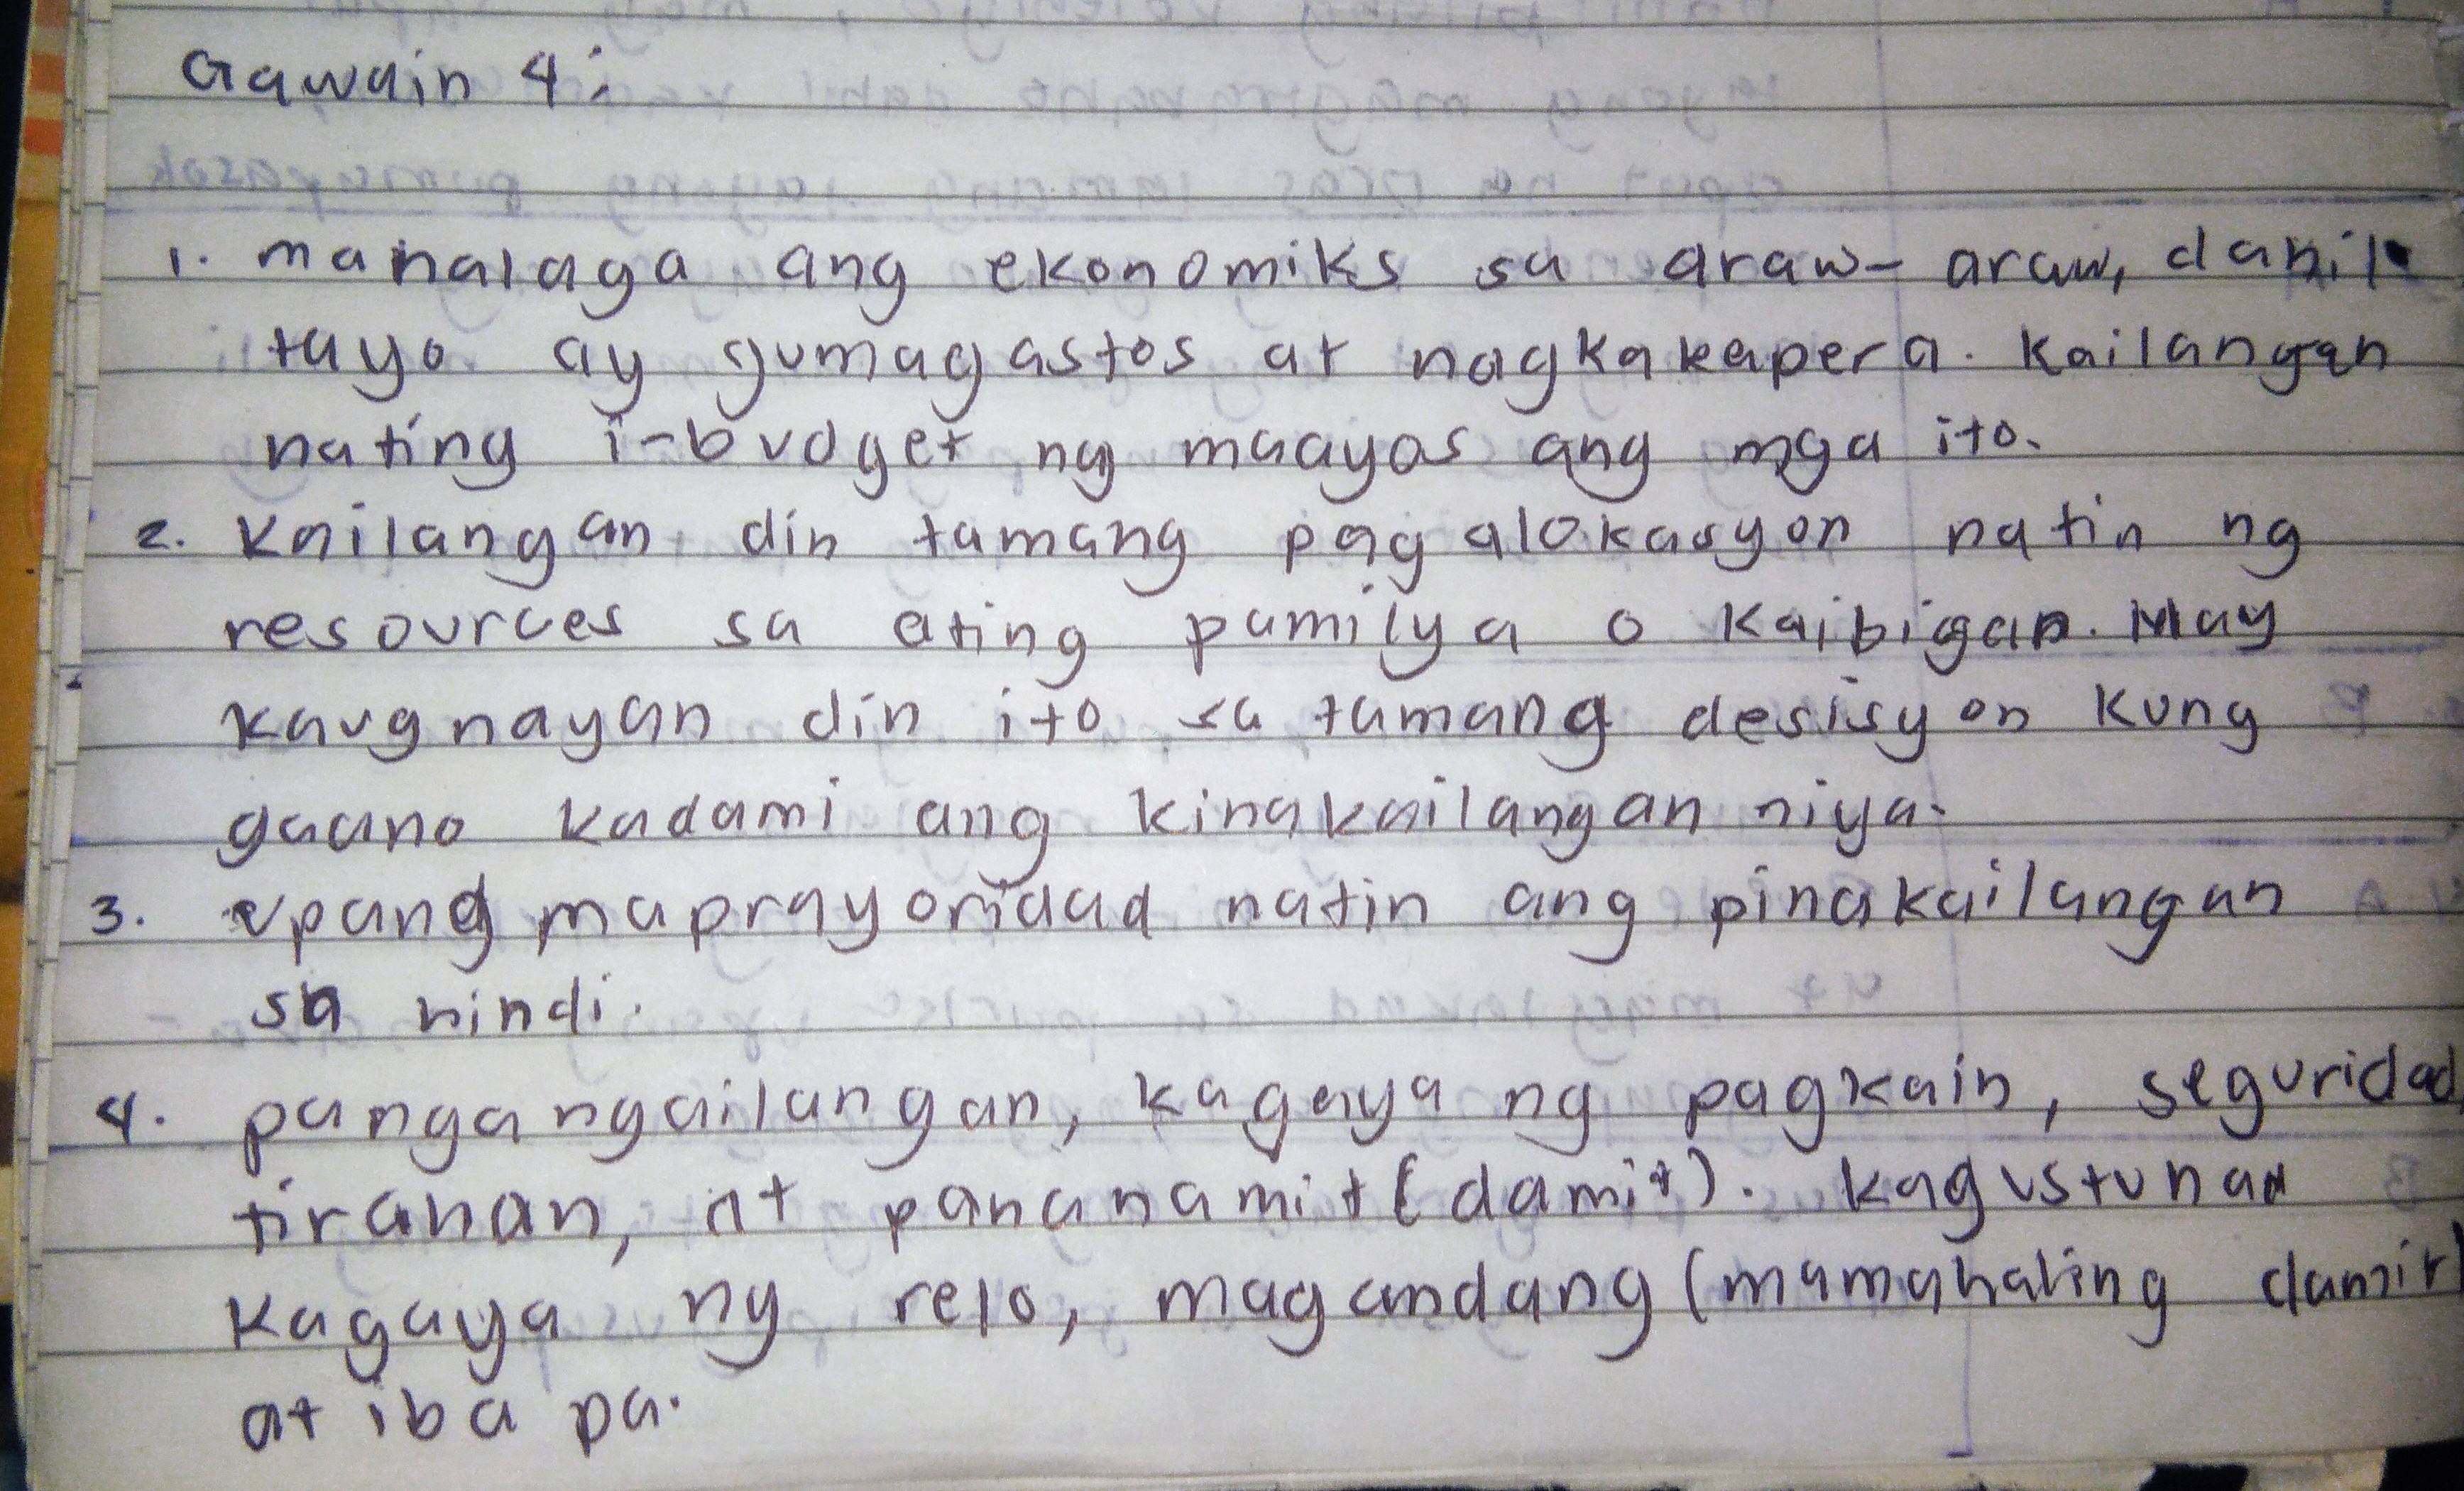 Gawain 4:
1. mahalaga ang ekonomiks sa araw- araw, dahil
tayo ay gumagastos at nagkakapera. Kailangan
nating i-budget ng maayos ang mga ito.
2. Kailangan din tamang pag alokasyon natin ng
resources sa ating pamilya o kaibigan. May
kaugnayan din ito sa tamang desisyon kung
gaano kadami ang kinakailangan niya.
3. upang maprayoridad natin ang pinakailangan
sa hindi.
4. pangangailangan, kagaya ng pagkain, seguridad
tirahan, at pananamit (damit). kagustuhan
kagaya ng relo, magandang (mamahaling damit)
at iba pa.